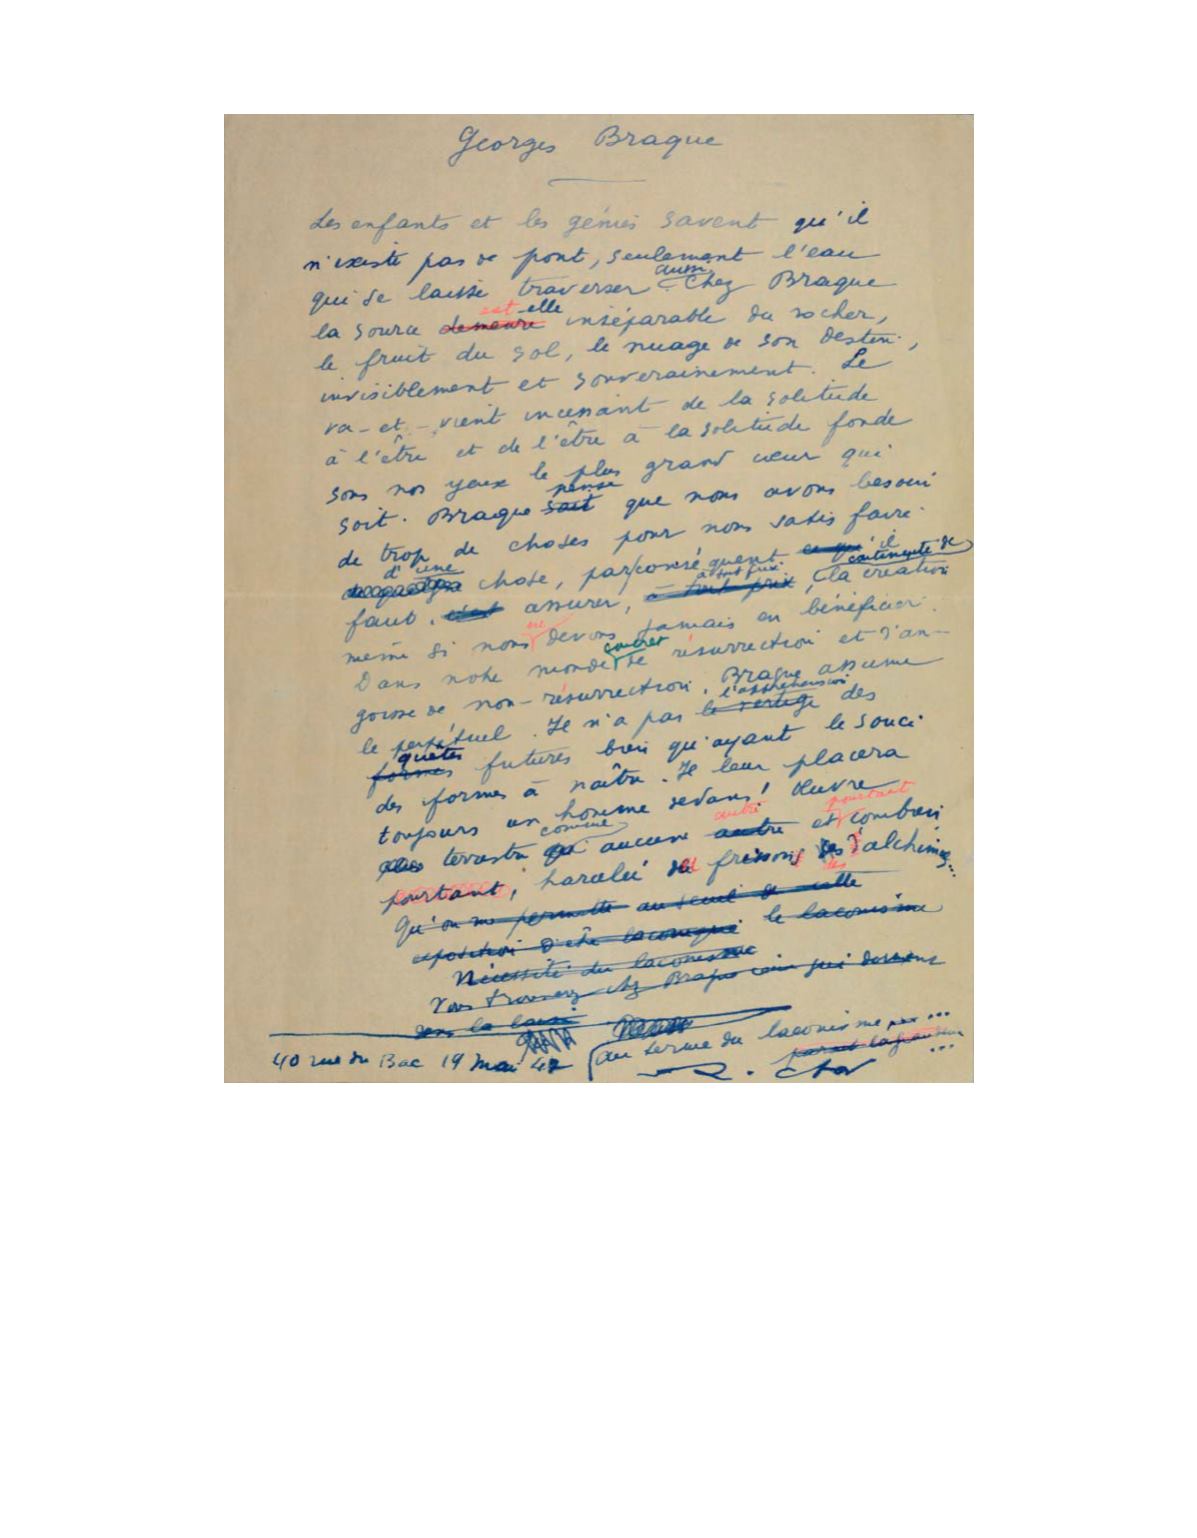 Georges Braque
Les enfants et les génies savent qu'il
n'existe pas de pont, seulement l'eau
qui se laisse traverser. aussi Chez Braque
la source demeure est-elle inséparable du rocher,
le fruit du sol, le nuage de son destin,
invisiblement et souverainement. Le
va-et-vient incessant de la solitude
à l'être et de l'être à la solitude fonde
sous nos yeux le plus grand cœur qui
soit. Braque sait pense que nous avons besoin
de trop de choses pour nous satisfaire
d'une chose, par conséquent il
faut assurer, à tout prix à tout prix, la continuité de la création
même si nous ne devons jamais en bénéficier.
Dans notre monde concret de résurrection et d'an-
goisse de non-résurrection, Braque assume
le perpétuel. Il n'a pas le vertige l'appréhension des
formes quêtes futures bien qu'ayant le souci
des formes à naître. Il leur placera
toujours un homme dedans! Œuvre
terrestre comme aucune autre autre et pourtant combien
pourtant, harcelée de frissons des alchimies...
Qu'on me permette au seuil de cette
exposition d'être laconique le laconisme
Nécessité du laconisme
Vous trouverez chez Braque
Au terme du laconisme...
40 rue du Bac 19 mai 47
R. Char